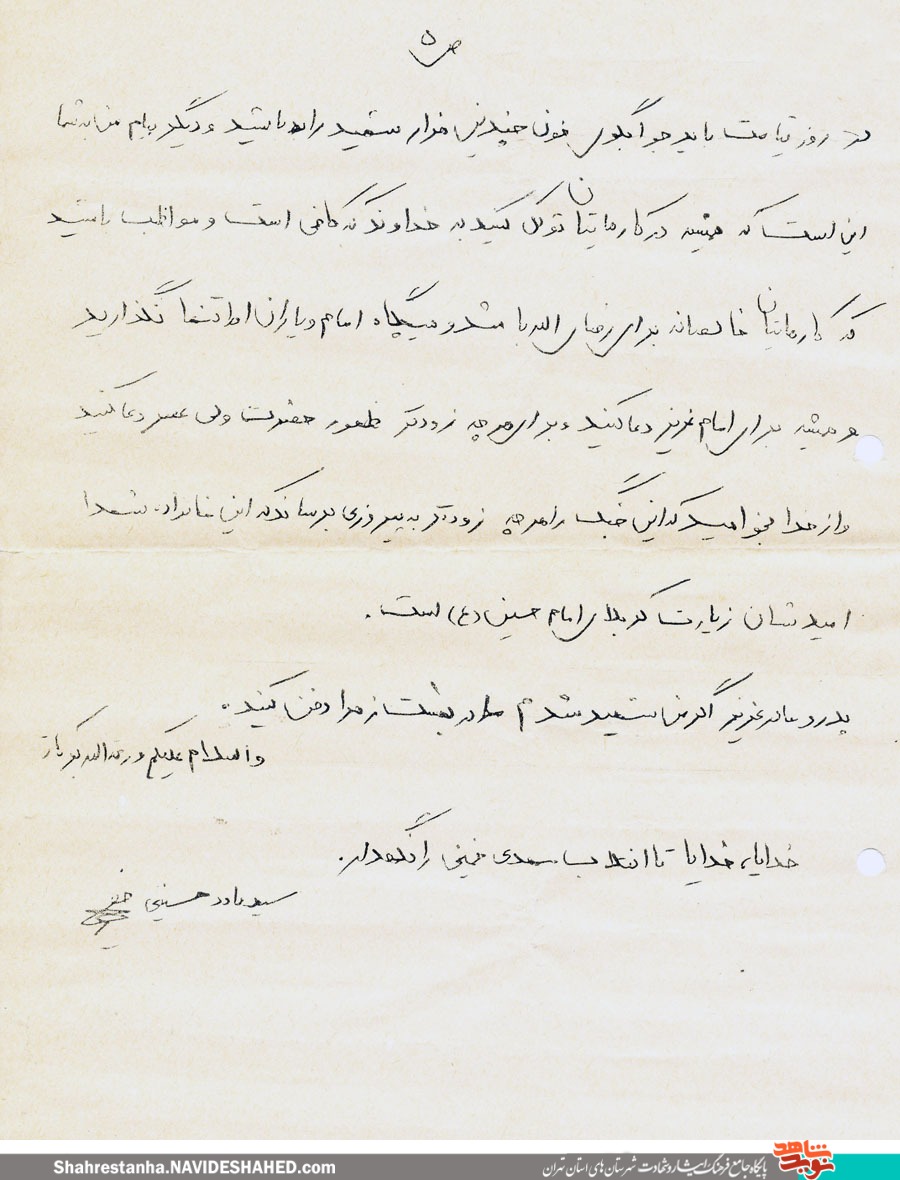 ص ۵
در روز قیامت باید جوابگوی خون چندین هزار شهید راه باشید و دیگر پیام من به شما
این است که همیشه در کارهایتان توکل کنید به خداوند که کافی است و مواظب باشید
که کارهایتان خالصانه برای رضای الله باشد و هیچگاه امام و یاران او را تنها نگذارید
و همیشه برای امام عزیز دعا کنید و برای هر چه زودتر ظهور حضرت ولی عصر دعا کنید
و از خدا بخواهید که این جنگ را هر چه زودتر به پیروزی برساند که این خانواده شهدا
امیدشان زیارت کربلای امام حسین (ع) است.
پدر و مادر عزیز اگر من شهید شدم در بهشت زهرا دفن کنید.
والسلام علیکم و رحمه الله و برکاته
خدایا، خدایا تا انقلاب مهدی خمینی را نگهدار.
سید حسینی
شاهد
نوید
پایگاه جامع فرهنگ ایثار و شهادت شهرستان های استان تهران
Shahrestanha.NAVIDESHAHED.com